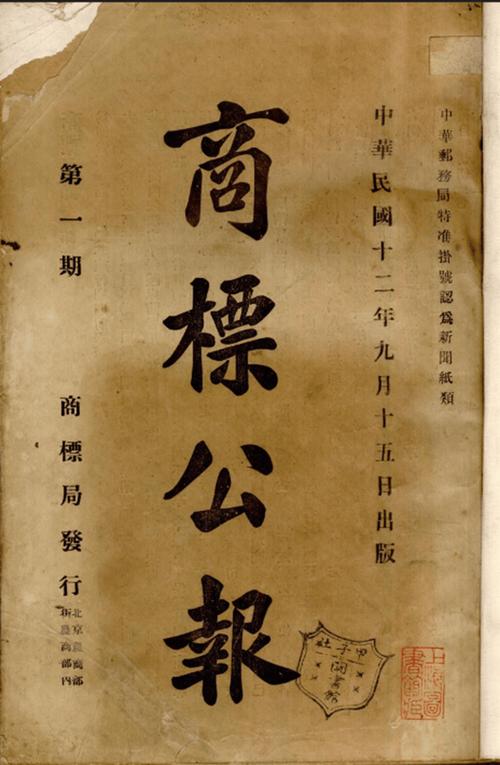 中華郵務局特准掛號認爲新聞紙類
中華民國十二年九月十五日出版
商標公報
第一期
商標局發行
北京農商部
新農商部內